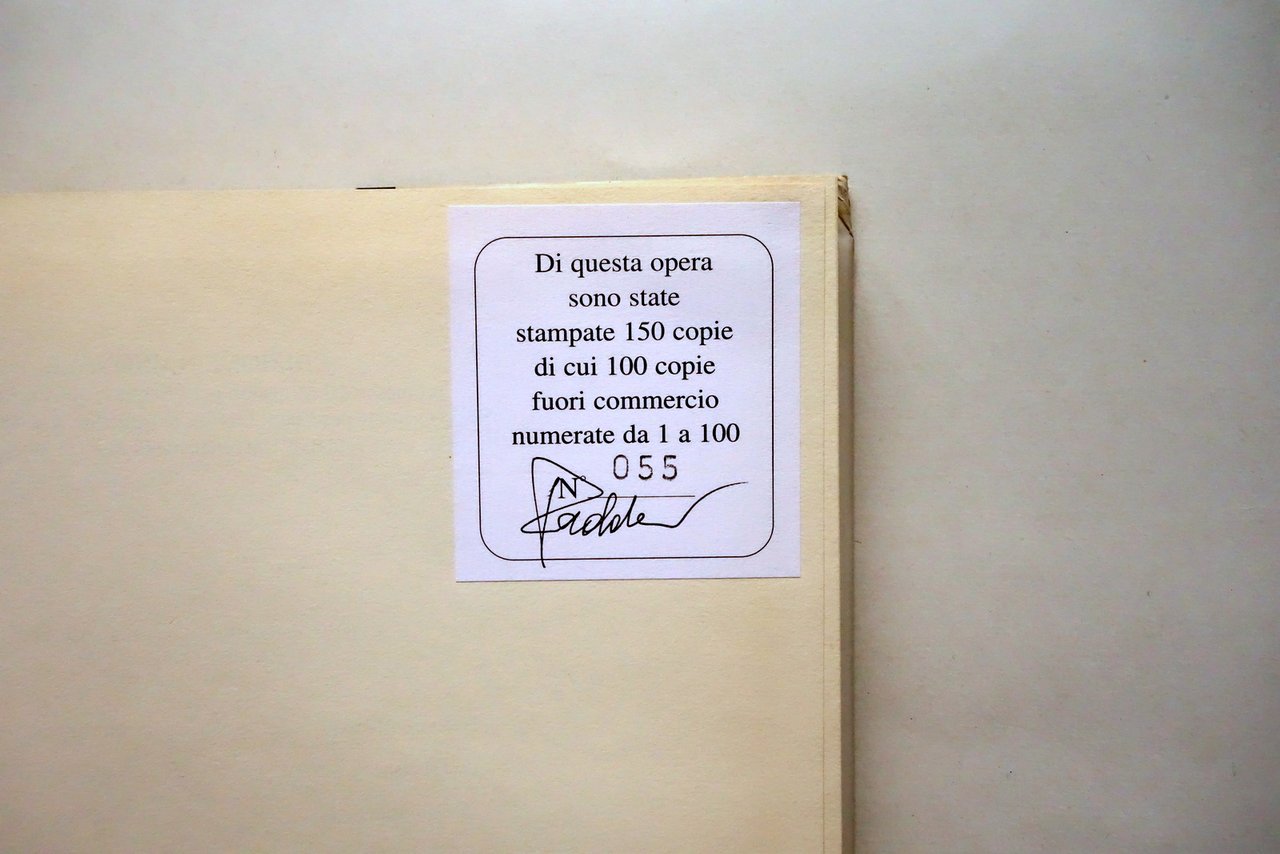 Di questa opera
sono state
stampate 150 copie
di cui 100 copie
fuori commercio
numerate da 1 a 100
N° 055